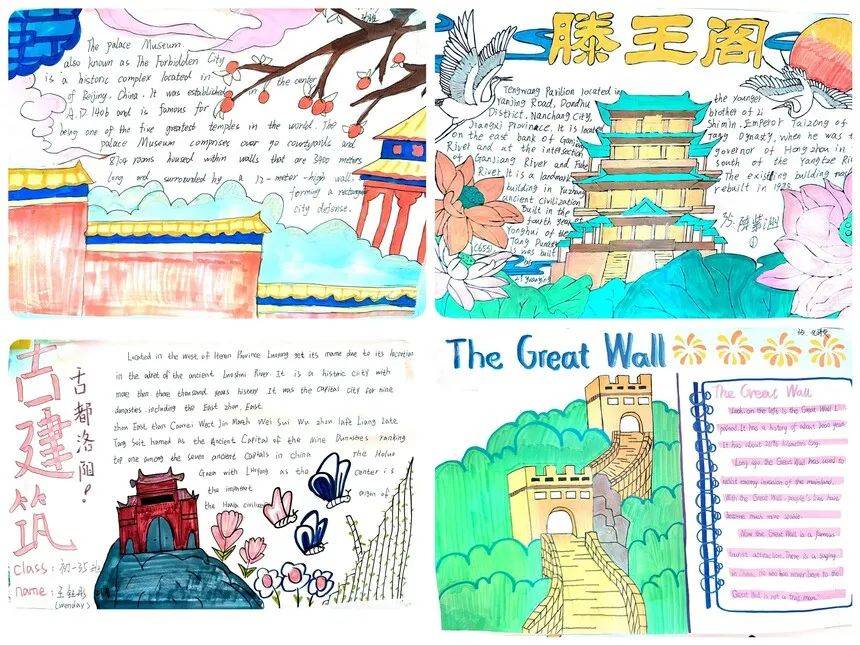 The palace Museum.
also known as The Forbidden City
is a historic complex located in the center
of Beijing, China. It was established in
A.D 1406 and is famous for
being one of the five greatest temples in the world. The
palace Museum comprises over 90 countyards and
8704 rooms housed within walls that are 3400 meters
long and surrounded by a 12-meter-high wall,
forming a rectangular
city defense.
滕王阁
Tengwang Pavilion located in
Yanjing Road, Donghu
District, Nanchang City,
Jiangxi province. It is located
on the east bank of Ganjiang
River and at the intersection
of Ganjiang River and Fuhe
River. It is a landmark
building in Yuzhang
ancient civilization
Built in the
fourth year of
Yonghui of the
Tang Dynasty
(653)
is was built
by
Li Yuanying
the younger
brother of Li
Shimin, Emperor Taizong of
Tang Dynasty, when he was the
governor of Hongzhou in
south of the Yangtze River
The existing building was
rebuilt in
①
古建筑
古都洛阳!
Located in the west of Henan Province Luoyang get its name due to its location
in the adret of the ancient Luoshui River. It is a historic city with
more than three thousand years history It was the capital city for nine
dynasties including the East zhou, East
zhou East Han Caowei West Jin North Wei Sui Wu zhou late Liang Late
Tang Suit named as the Ancient Capital of the nine Dynasties ranking
top one among the seven ancient capitals in China The Heluo
Green with Luoyang as the center is
the important origin of
the Huaxia civilization
class: 初一35班
name:
(wenday)
The Great Wall
The Great Wall
Look, on the left is the Great Wall I
painted. It has a history of about 2000 years.
It has about kilometers long.
Long ago, the Great Wall was used to
resist enemy invasion of the mainland.
With the Great Wall, people's lives have
become much more stable.
Now the Great Wall is a famous
tourist attraction. There is a saying
in China: He who has never been to the
Great Wall is not a true man.